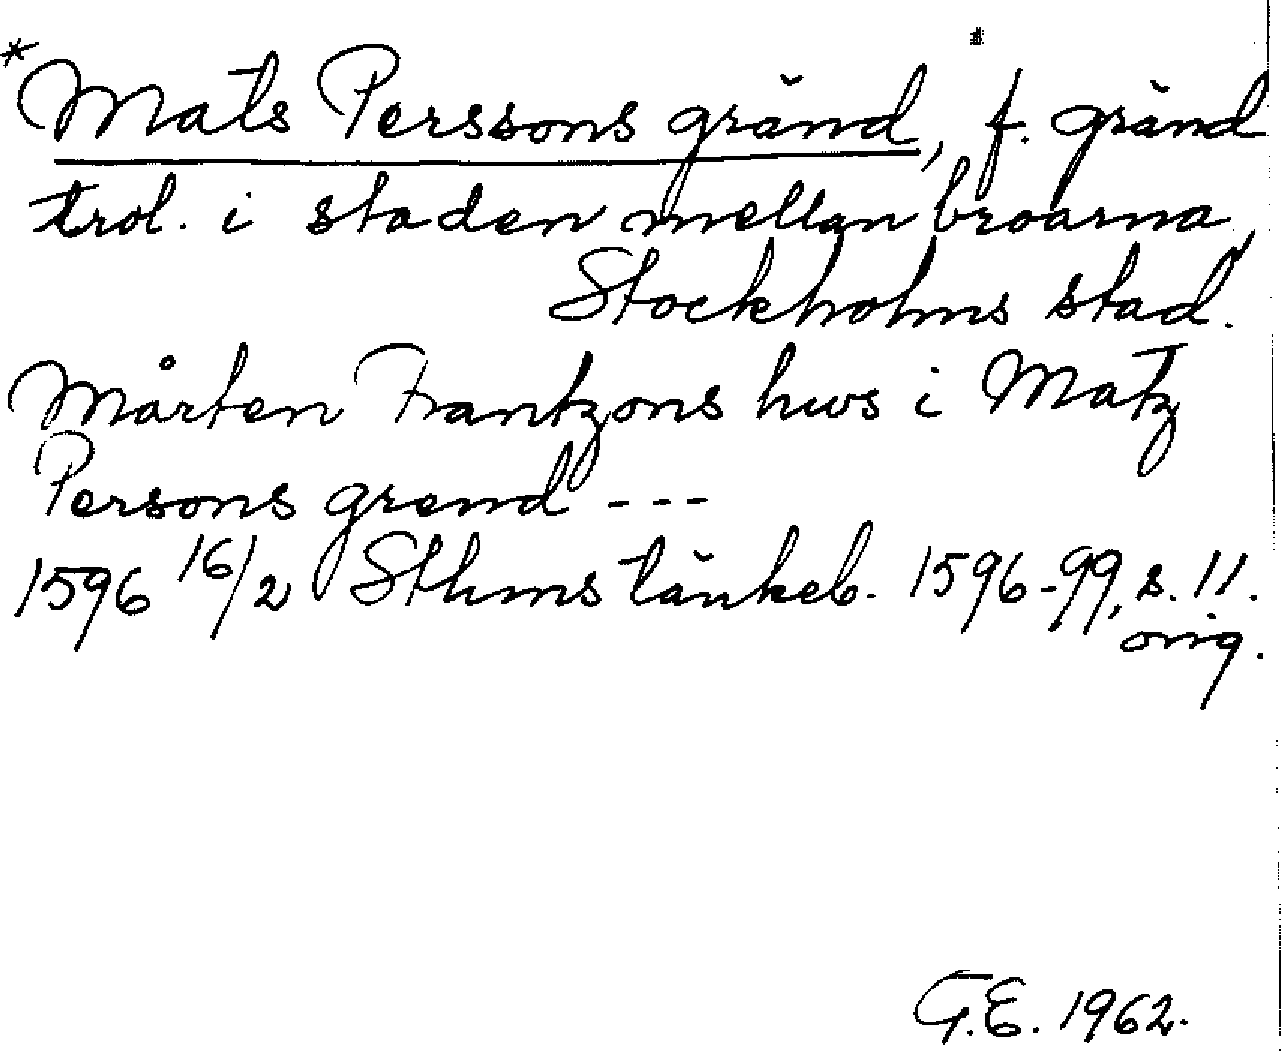 *Mats Perssons gränd, f. gränd
trol. i staden mellan broarna,
Stockholms stad.
Mårten Frantzons hws i Matz
Persons grend ---
1596 16/2 Sthms tänkeb. 1596-99, s. 11.
orig.
G.E. 1962.